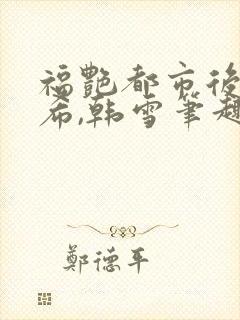 福艷都市後
布,韩雪筆趣
鄭德平